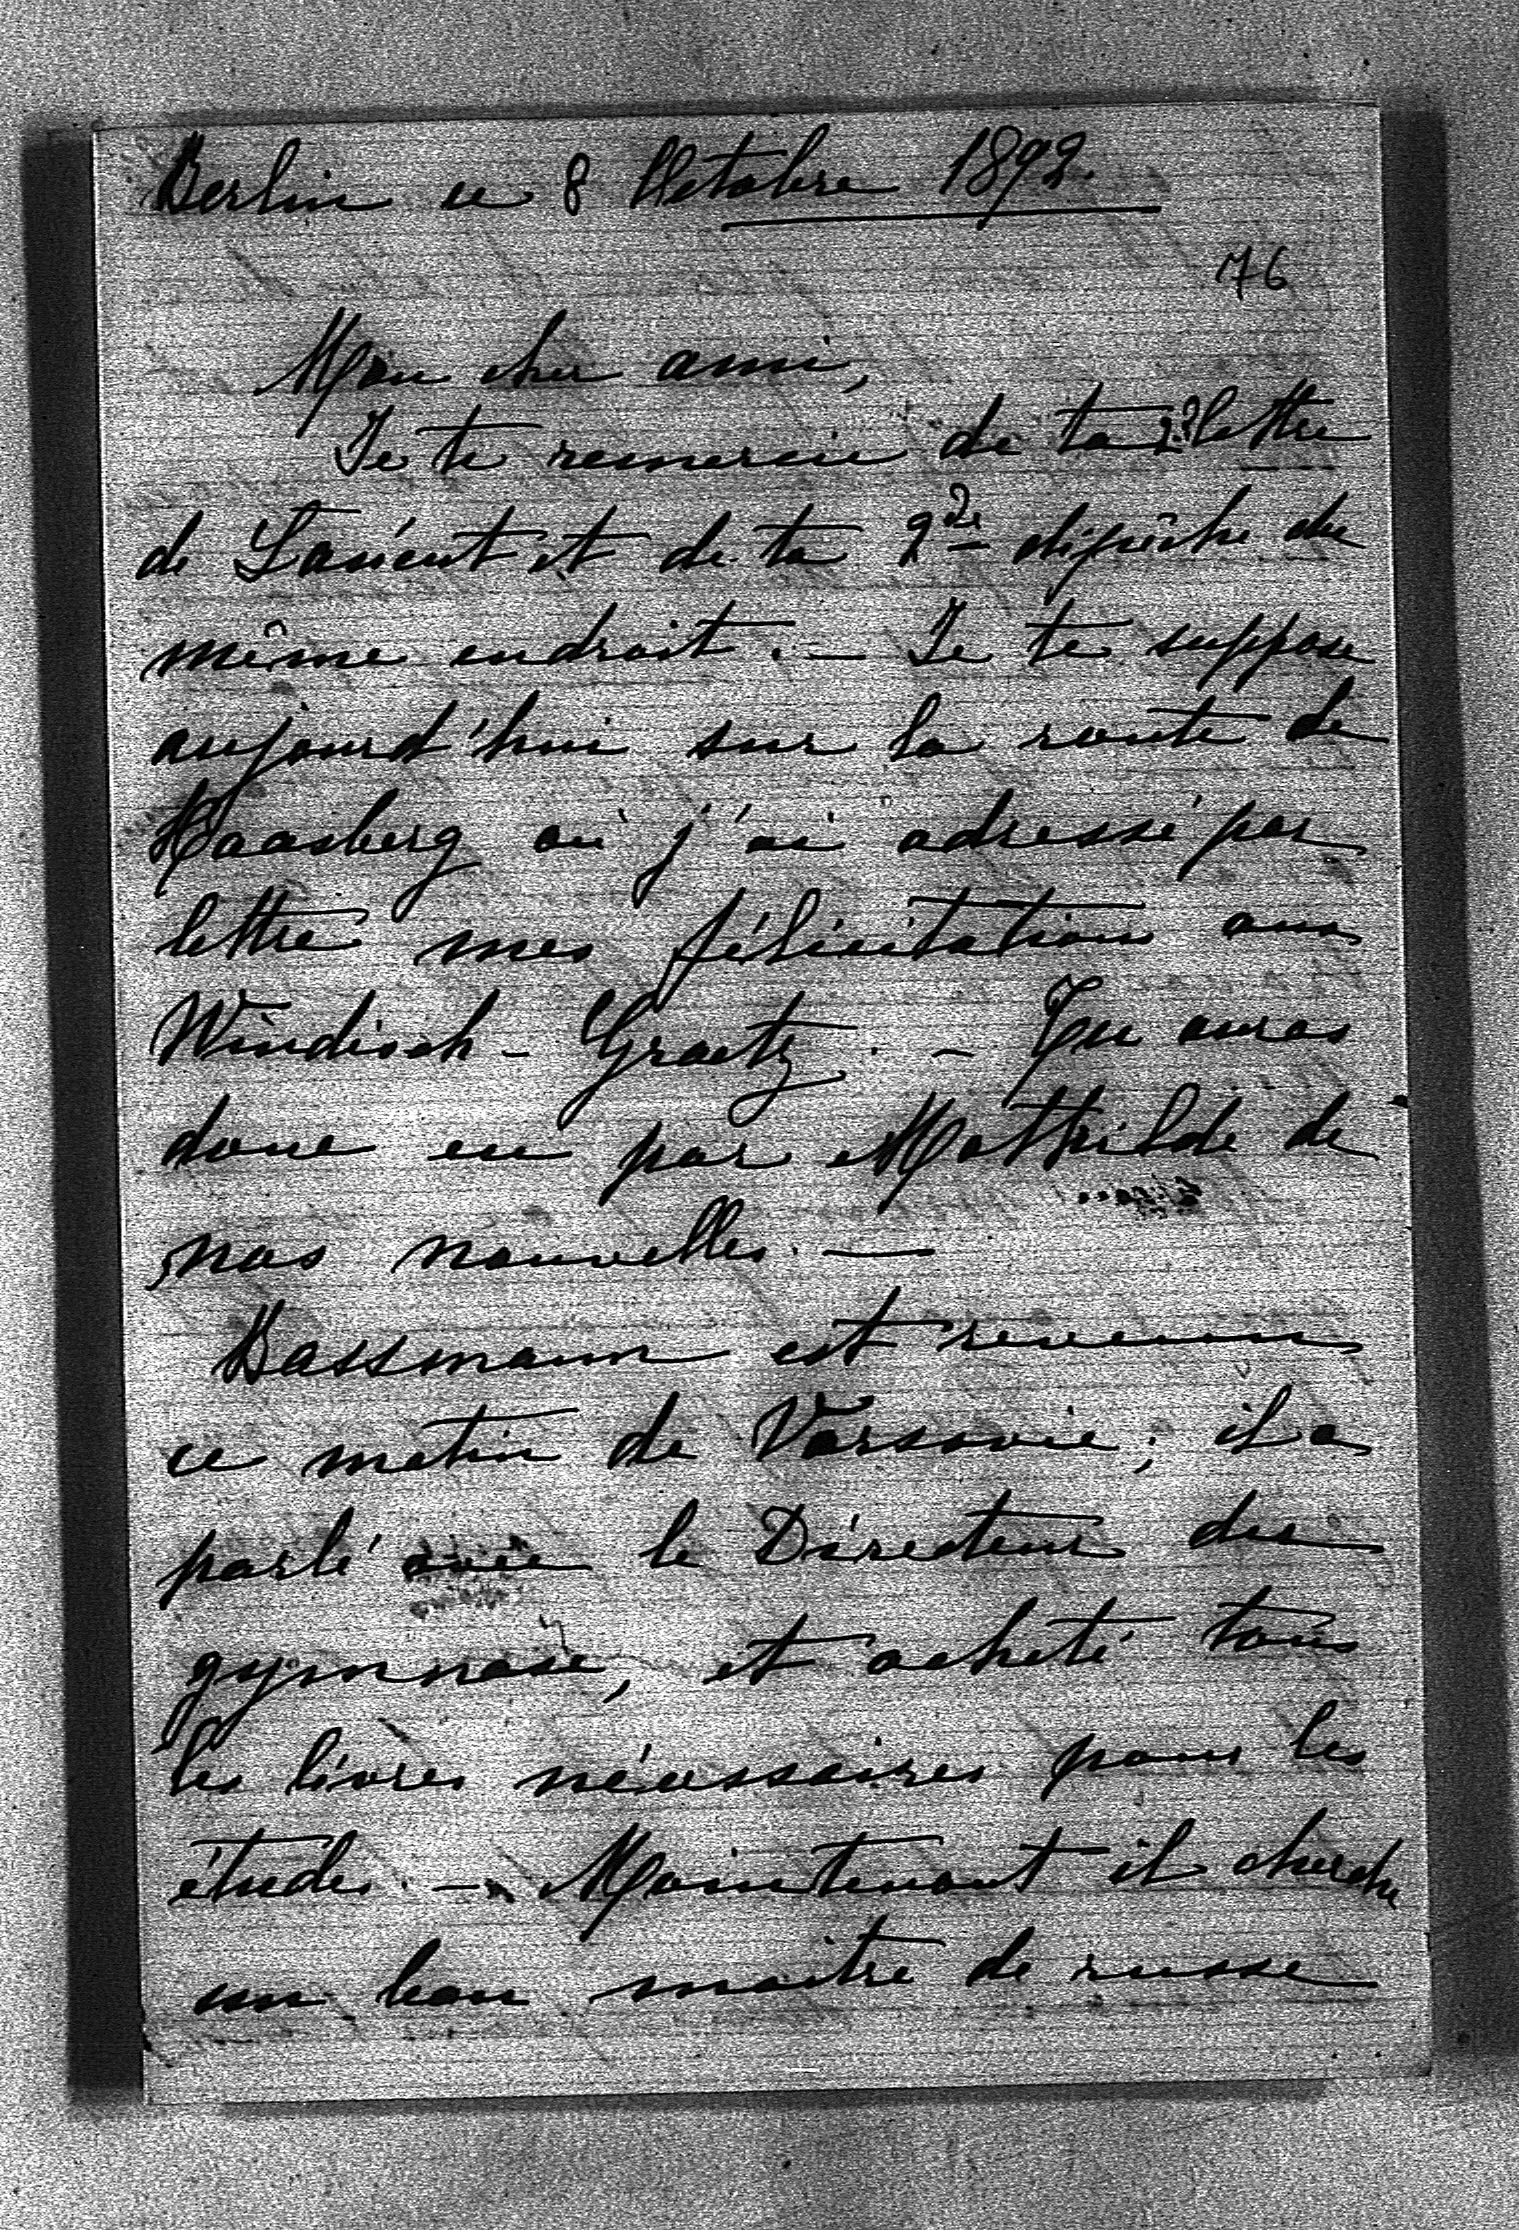 Berlin ce 8 Octobre 1892.
76
Mon cher ami,
Je te remercie de ta 2de lettre
de Lancut et de ta 2de dépêche du
même endroit. — Je te suppose
aujourd'hui sur la route de
Haasberg où j'ai adressé par
lettre mes félicitations aux
Windisch-Graetz. — Tu auras
donc eu par Mathilde de
nos nouvelles. —
Bassmann est revenu
ce matin de Varsovie; il a
parlé avec le Directeur du
gymnase, et acheté tous
les livres nécessaires pour les
études. — Maintenant il cherche
un bon maître de russe